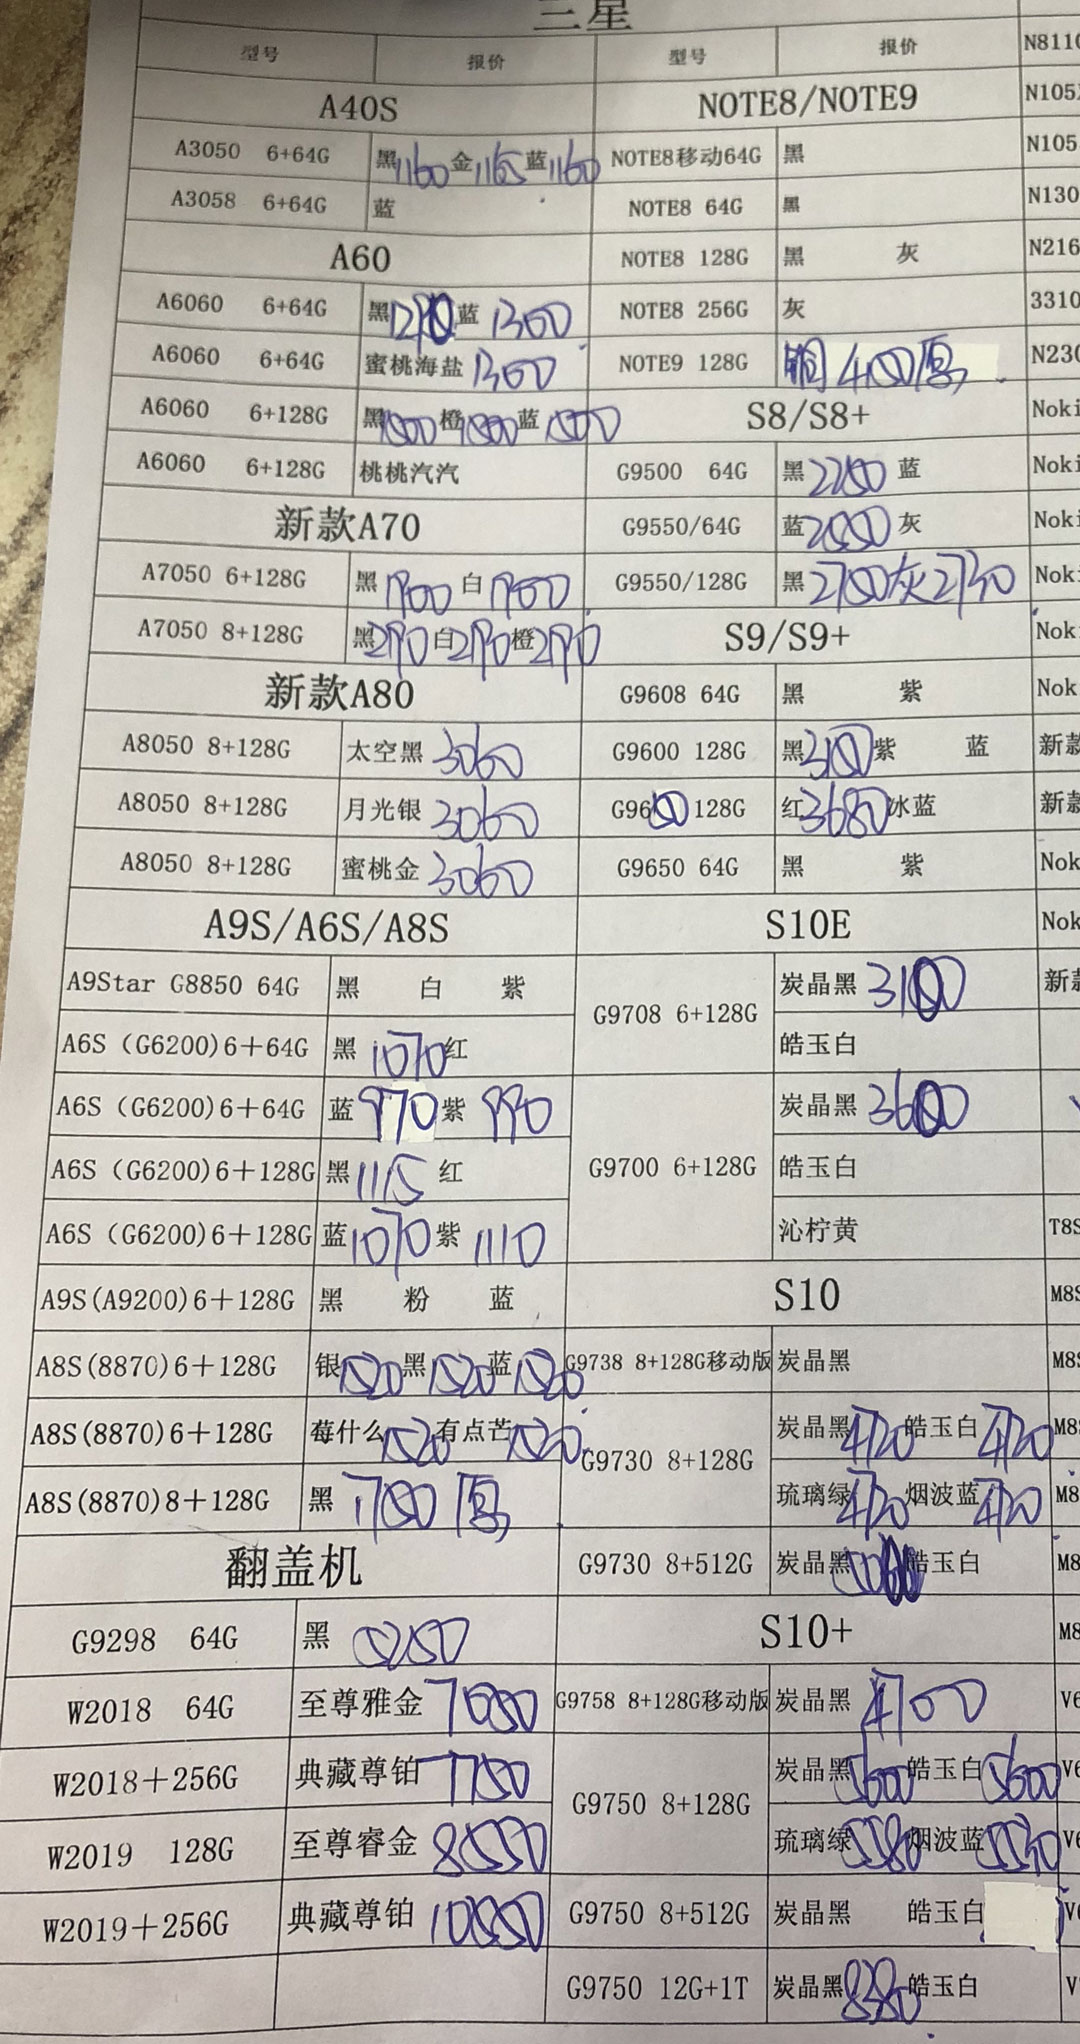 三星
型号 报价 型号 报价
A40S NOTE8/NOTE9
A3050 6+64G 黑1160 金1165 蓝1160 NOTE8移动64G 黑 N105
A3058 6+64G 蓝 NOTE8 64G 黑 N130
A60 NOTE8 128G 黑 灰 N216
A6060 6+64G 黑 蓝 1300 NOTE8 256G 灰 3310
A6060 6+64G 蜜桃海盐 1300 NOTE9 128G 铜 原 N230
A6060 6+128G 黑 橙 蓝 S8/S8+ Noki
A6060 6+128G 桃桃汽汽 G9500 64G 黑2250 蓝 Noki
新款A70 G9550/64G 蓝2550 灰 Noki
A7050 6+128G 黑1900 白1900 G9550/128G 黑2700灰2730 Noki
A7050 8+128G 黑2190白2190橙2190 S9/S9+ Nok
新款A80 G9608 64G 黑 紫 Nok
A8050 8+128G 太空黑 3060 G9600 128G 黑3100紫 蓝 新款
A8050 8+128G 月光银 3060 128G 红3680冰蓝 新款
A8050 8+128G 蜜桃金 3060 G9650 64G 黑 紫 Nok
A9S/A6S/A8S S10E Nok
A9Star G8850 64G 黑 白 紫 G9708 6+128G 炭晶黑 3100 新款
A6S（G6200)6+64G 黑 1070红 皓玉白
A6S（G6200)6+64G 蓝970 紫 990 G9700 6+128G 炭晶黑 3600
A6S（G6200)6+128G 黑1115 红 皓玉白
A6S（G6200)6+128G 蓝1070 紫 1110 沁柠黄 T8S
A9S(A9200)6+128G 黑 粉 蓝 S10 M8S
A8S(8870)6+128G 银1520黑1520蓝1520 G9738 8+128G移动版 炭晶黑 M8S
A8S(8870)6+128G 莓什么1520有点芒1520 G9730 8+128G 炭晶黑4720皓玉白4720 M8
A8S(8870)8+128G 黑 1750原 琉璃绿4720烟波蓝4720 M8
翻盖机 G9730 8+512G 炭晶黑 皓玉白 M8
G9298 64G 黑 5250 S10+ M8
W2018 64G 至尊雅金 7050 G9758 8+128G移动版 炭晶黑 4700 V6
W2018+256G 典藏尊铂 7750 G9750 8+128G 炭晶黑5600皓玉白5600 V6
W2019 128G 至尊睿金 8550 琉璃绿5580烟波蓝5530 V6
W2019+256G 典藏尊铂 10550 G9750 8+512G 炭晶黑 皓玉白 V6
G9750 12G+1T 炭晶黑8380皓玉白